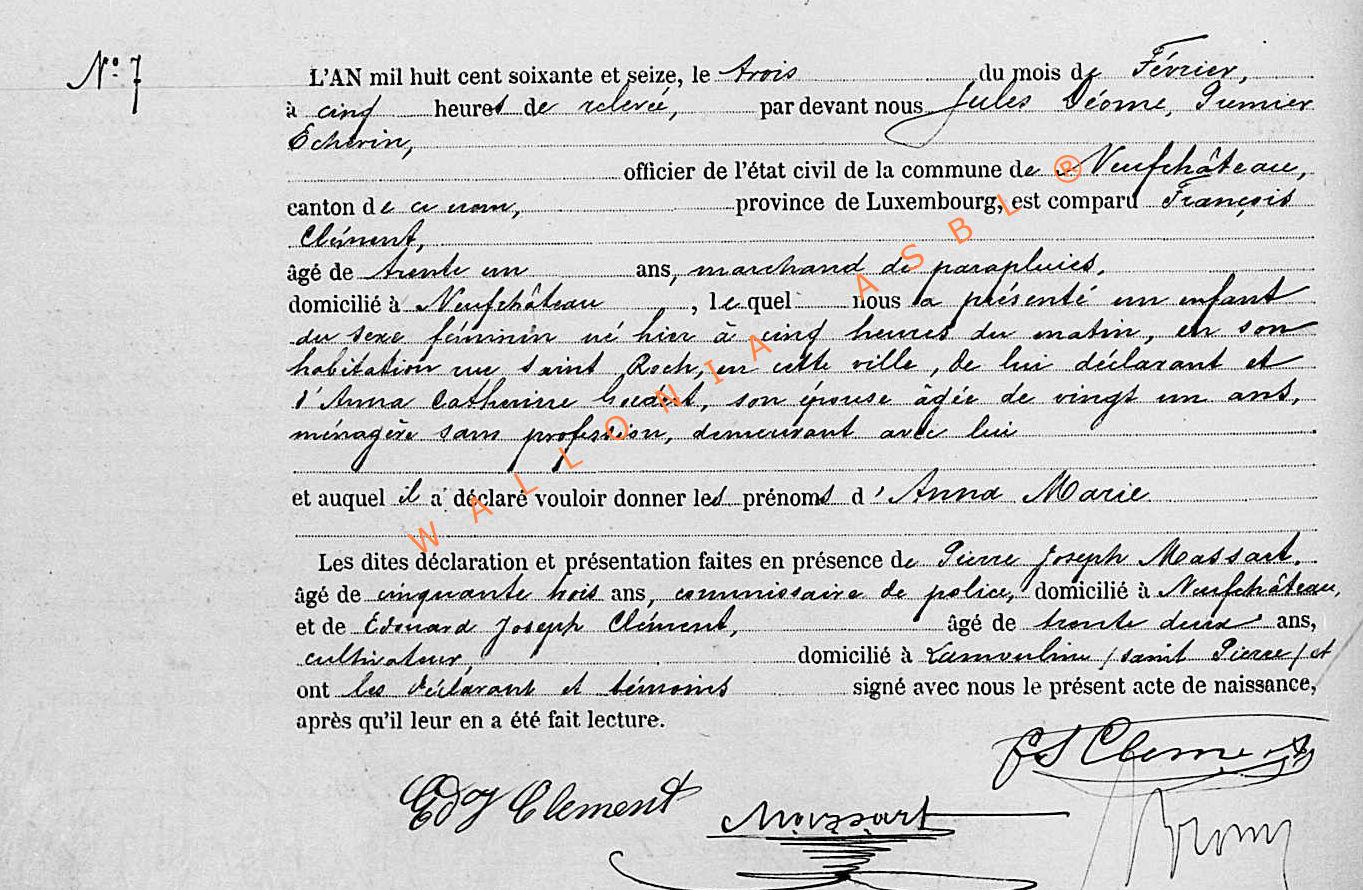 N° 7
L'AN mil huit cent soixante et seize, le trois du mois de Février,
à cinq heures de relevée, par devant nous Jules Déome, Premier
Echevin,
officier de l'état civil de la commune de Neufchâteau,
canton de ce nom, province de Luxembourg, est comparu François
Clément,
âgé de trente un ans, marchand de parapluies,
domicilié à Neufchâteau, lequel nous a présenté un enfant
du sexe féminin né hier à cinq heures du matin, en son
habitation rue Saint Roch, en cette ville, de lui déclarant et
d'Anna Catherine son épouse âgée de vingt un ans,
ménagère sans profession, demeurant avec lui
et auquel il a déclaré vouloir donner les prénoms d'Anna Marie
Les dites déclaration et présentation faites en présence de Pierre Joseph Massart,
âgé de cinquante trois ans, commissaire de police, domicilié à Neufchâteau,
et de Edouard Joseph Clément, âgé de trente deux ans,
cultivateur, domicilié à Lamouline (Saint Pierre) et
ont les déclarant et témoins signé avec nous le présent acte de naissance,
après qu'il leur en a été fait lecture.
Clement
Edg Clement
Massart
WALLONIA ASBL ®